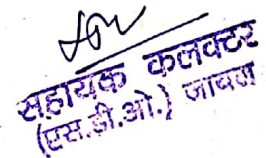 सहायक कलक्टर
(एस.डी.ओ.) जावरा